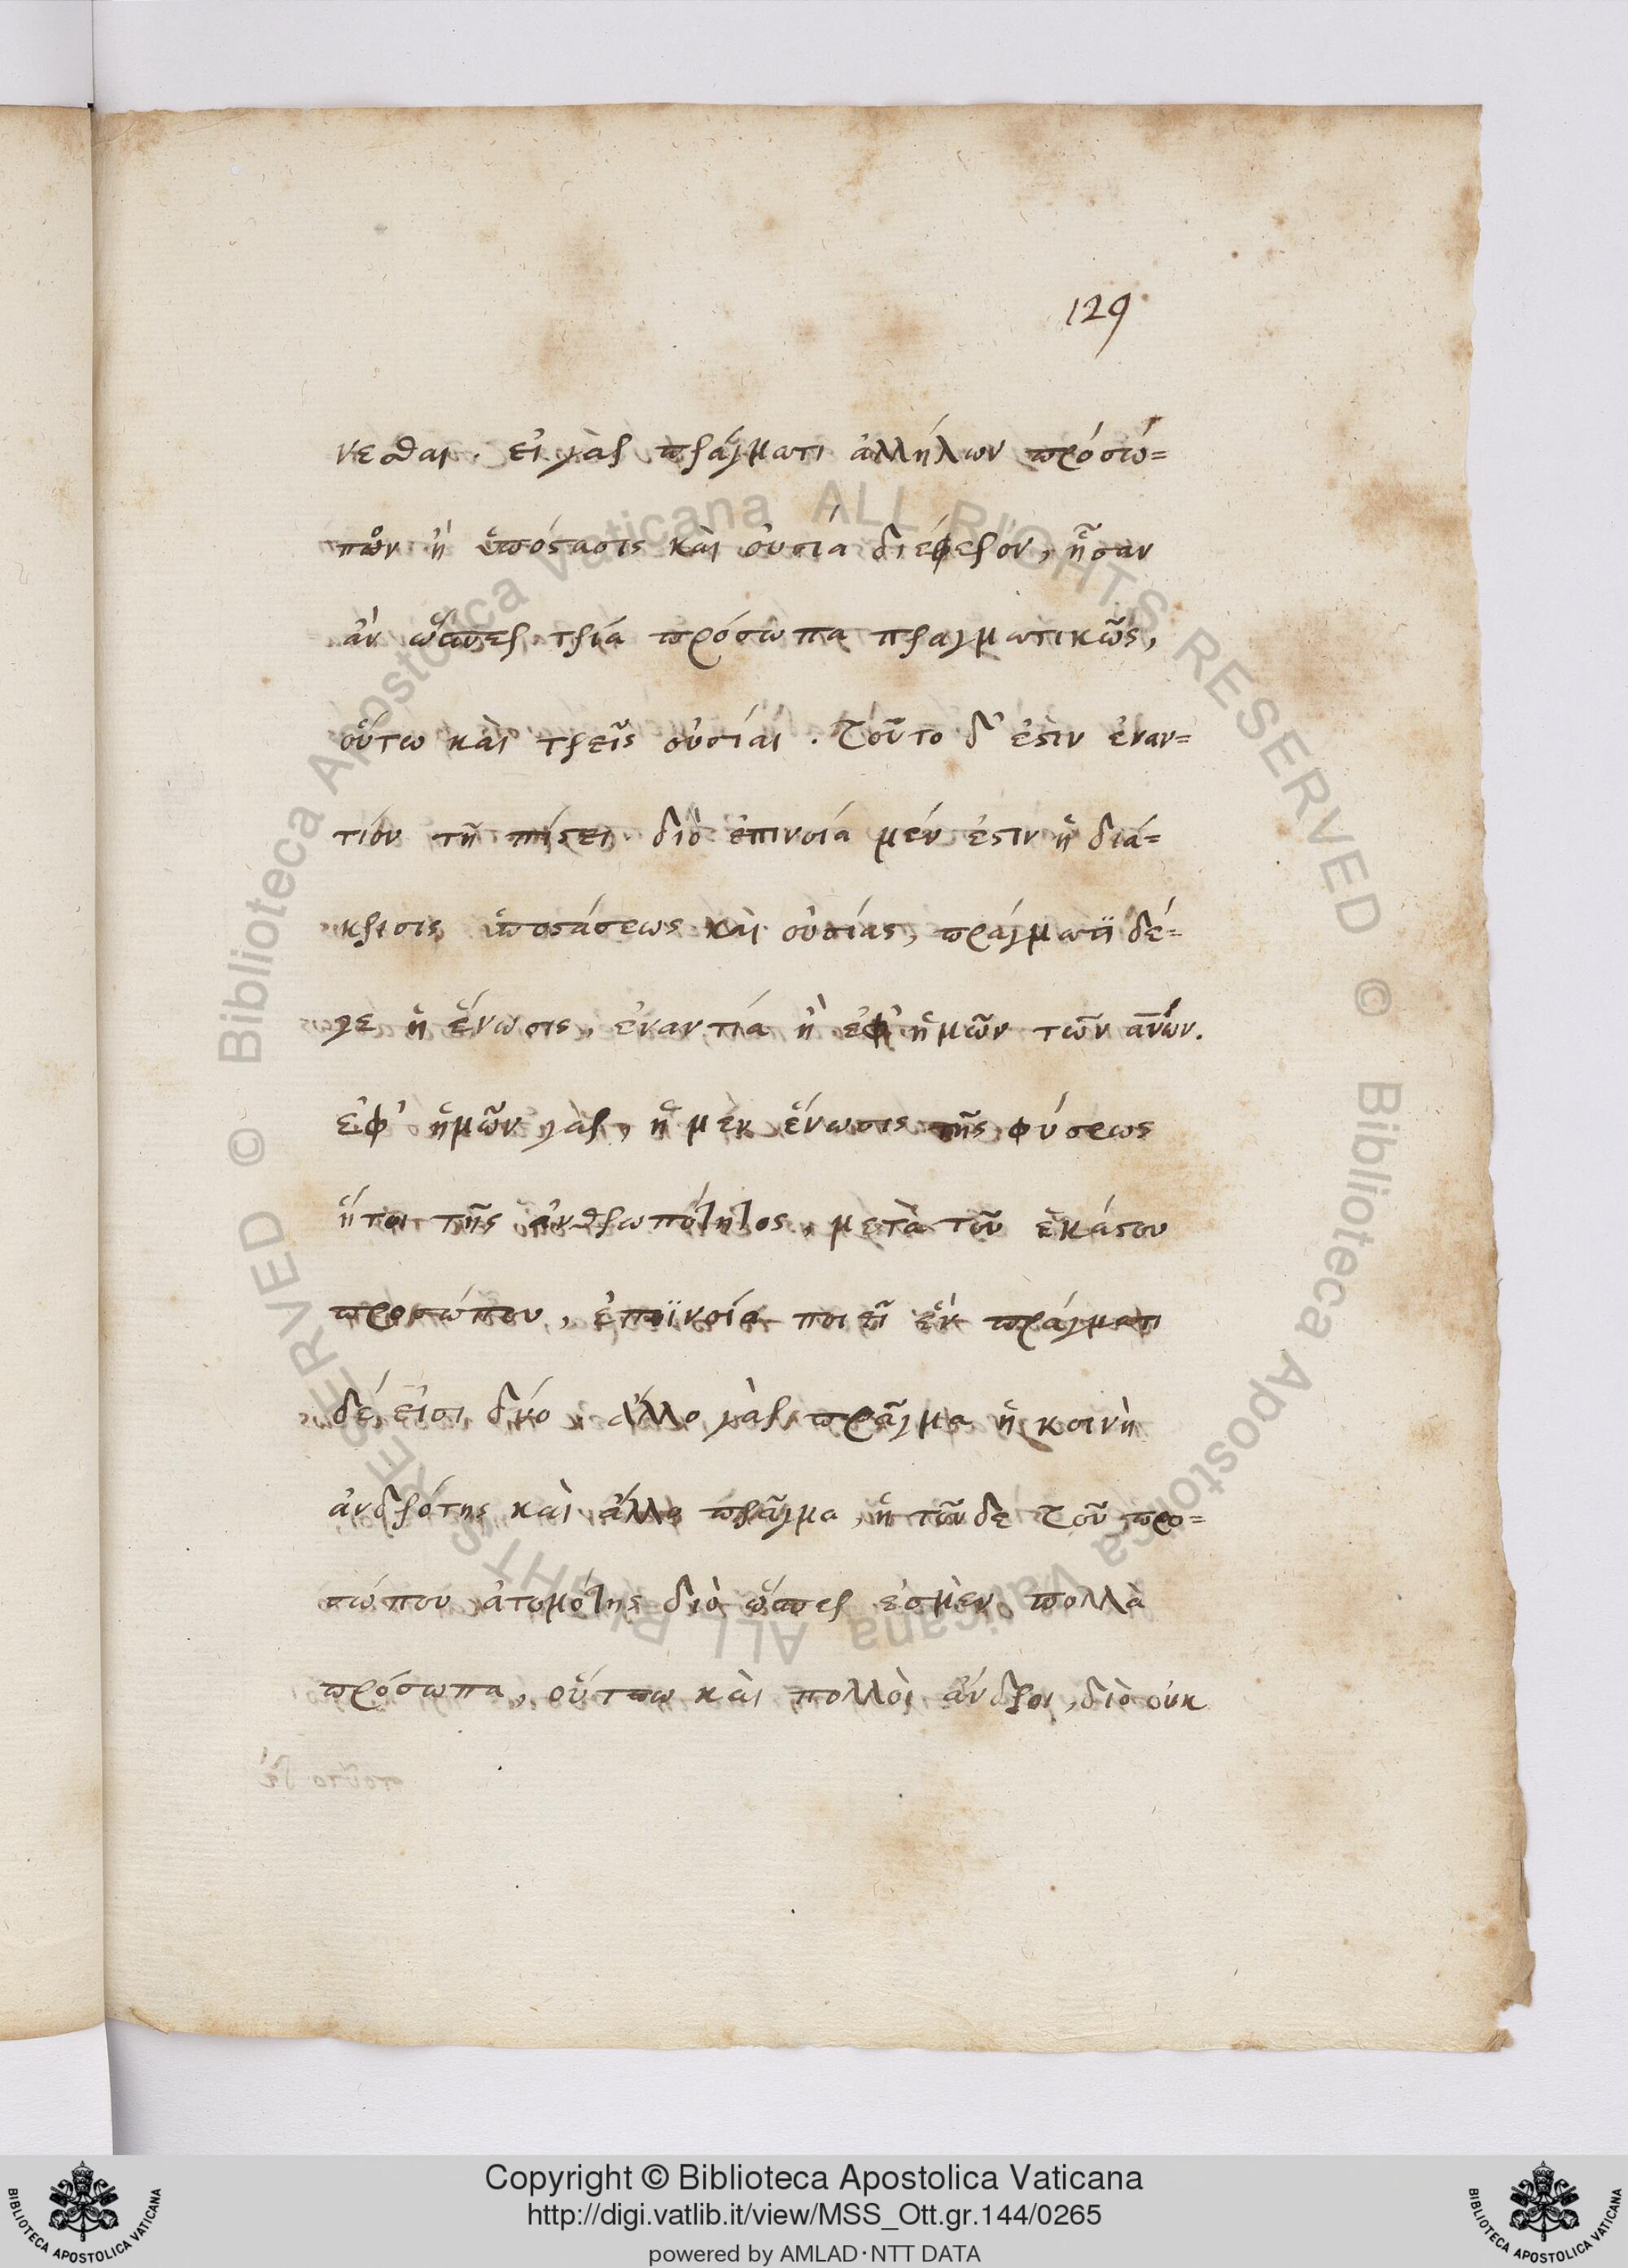 129
νεσθαι. εἰ γὰρ πράγματι ἀλλήλων πρόσώ=
πων ἡ ὑπόστασις καὶ οὐσία διέφερον, ἦσαν
ἀν ὥσπερ τρία πρόσωπα πραγματικῶς,
οὕτω καὶ τρεῖς οὐσίαι. Τοῦτο δ' ἐστὶν ἐναν=
τίον τῇ πίστει. διὸ ἐπινοία μέν ἐστιν ἡ διά=
κρισις ὑποστάσεως καὶ οὐσίας, πράγματι δέ=
γε ἡ ἕνωσις, ἐναντία ἢ ἐφ' ἡμῶν τῶν ἀνων.
ἐφ' ἡμῶν γὰρ, ἡ μὲν ἕνωσις τῆς φύσεως
ἤτοι τῆς ἀνθρωπότητος, μετὰ τοῦ ἑκάστου
προσώπου, ἐποϊνοία ποιεῖ ἓν πράγματι
δέ εἰσι δύο. ἄλλο γὰρ πρᾶγμα ἡ κοινὴ
ἀνδρότης καὶ ἄλλο πρᾶγμα, ἡ τοῦ δε τοῦ προ=
σώπου ἀτομότης διὸ ὥσπερ ἐσμὲν πολλὰ
πρόσωπα, οὕτω καὶ πολλοὶ ἄνδροι, διὸ οὐκ
Biblioteca Apostolica Vaticana ALL RIGHTS RESERVED ©
Biblioteca Apostolica Vaticana ALL RIGHTS RESERVED ©
Copyright © Biblioteca Apostolica Vaticana
http://digi.vatlib.it/view/MSS_Ott.gr.144/0265
powered by AMLAD·NTT DATA
BIBLIOTECA APOSTOLICA VATICANA
BIBLIOTECA APOSTOLICA VATICANA